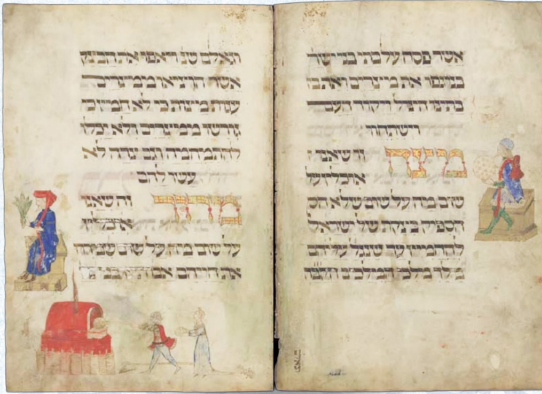 אשר פסח על בתי בני ישר
בנגפו את מצרים ואת
בתינו הציל ויקוד העם
וישתחוו
מצה זו שאנו
אוכלין על
שום מה על שום שלא
הספיק בצקת של ישראל
להחמיץ עד שנגלה עליהם
מלך המלכים
וגאלם שנ ויאפו את הבצק
אשר הוציאו ממצרים
עגת מצות כי לא חמץ כי
גורשו ממצרים ולא יכלו
להתמהמה וגם צדה לא
עשו להם
מרור זה שאנו
אוכלין
על שום מה על שום שמררו
את חייהם